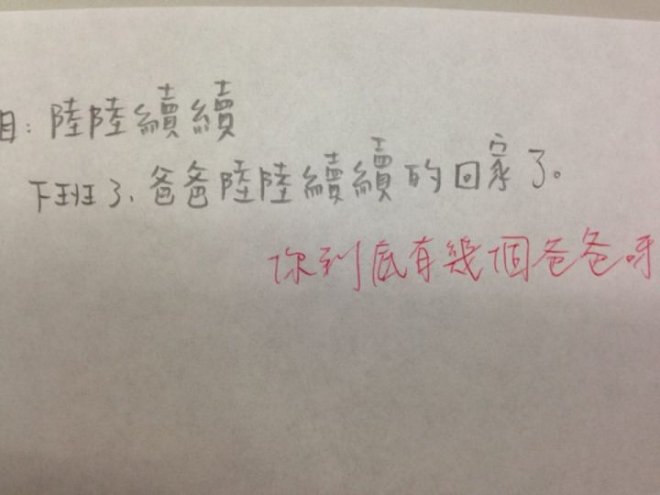 目：陸陸續續
下班了、爸爸陸陸續續的回家了。
你到底有幾個爸爸呀